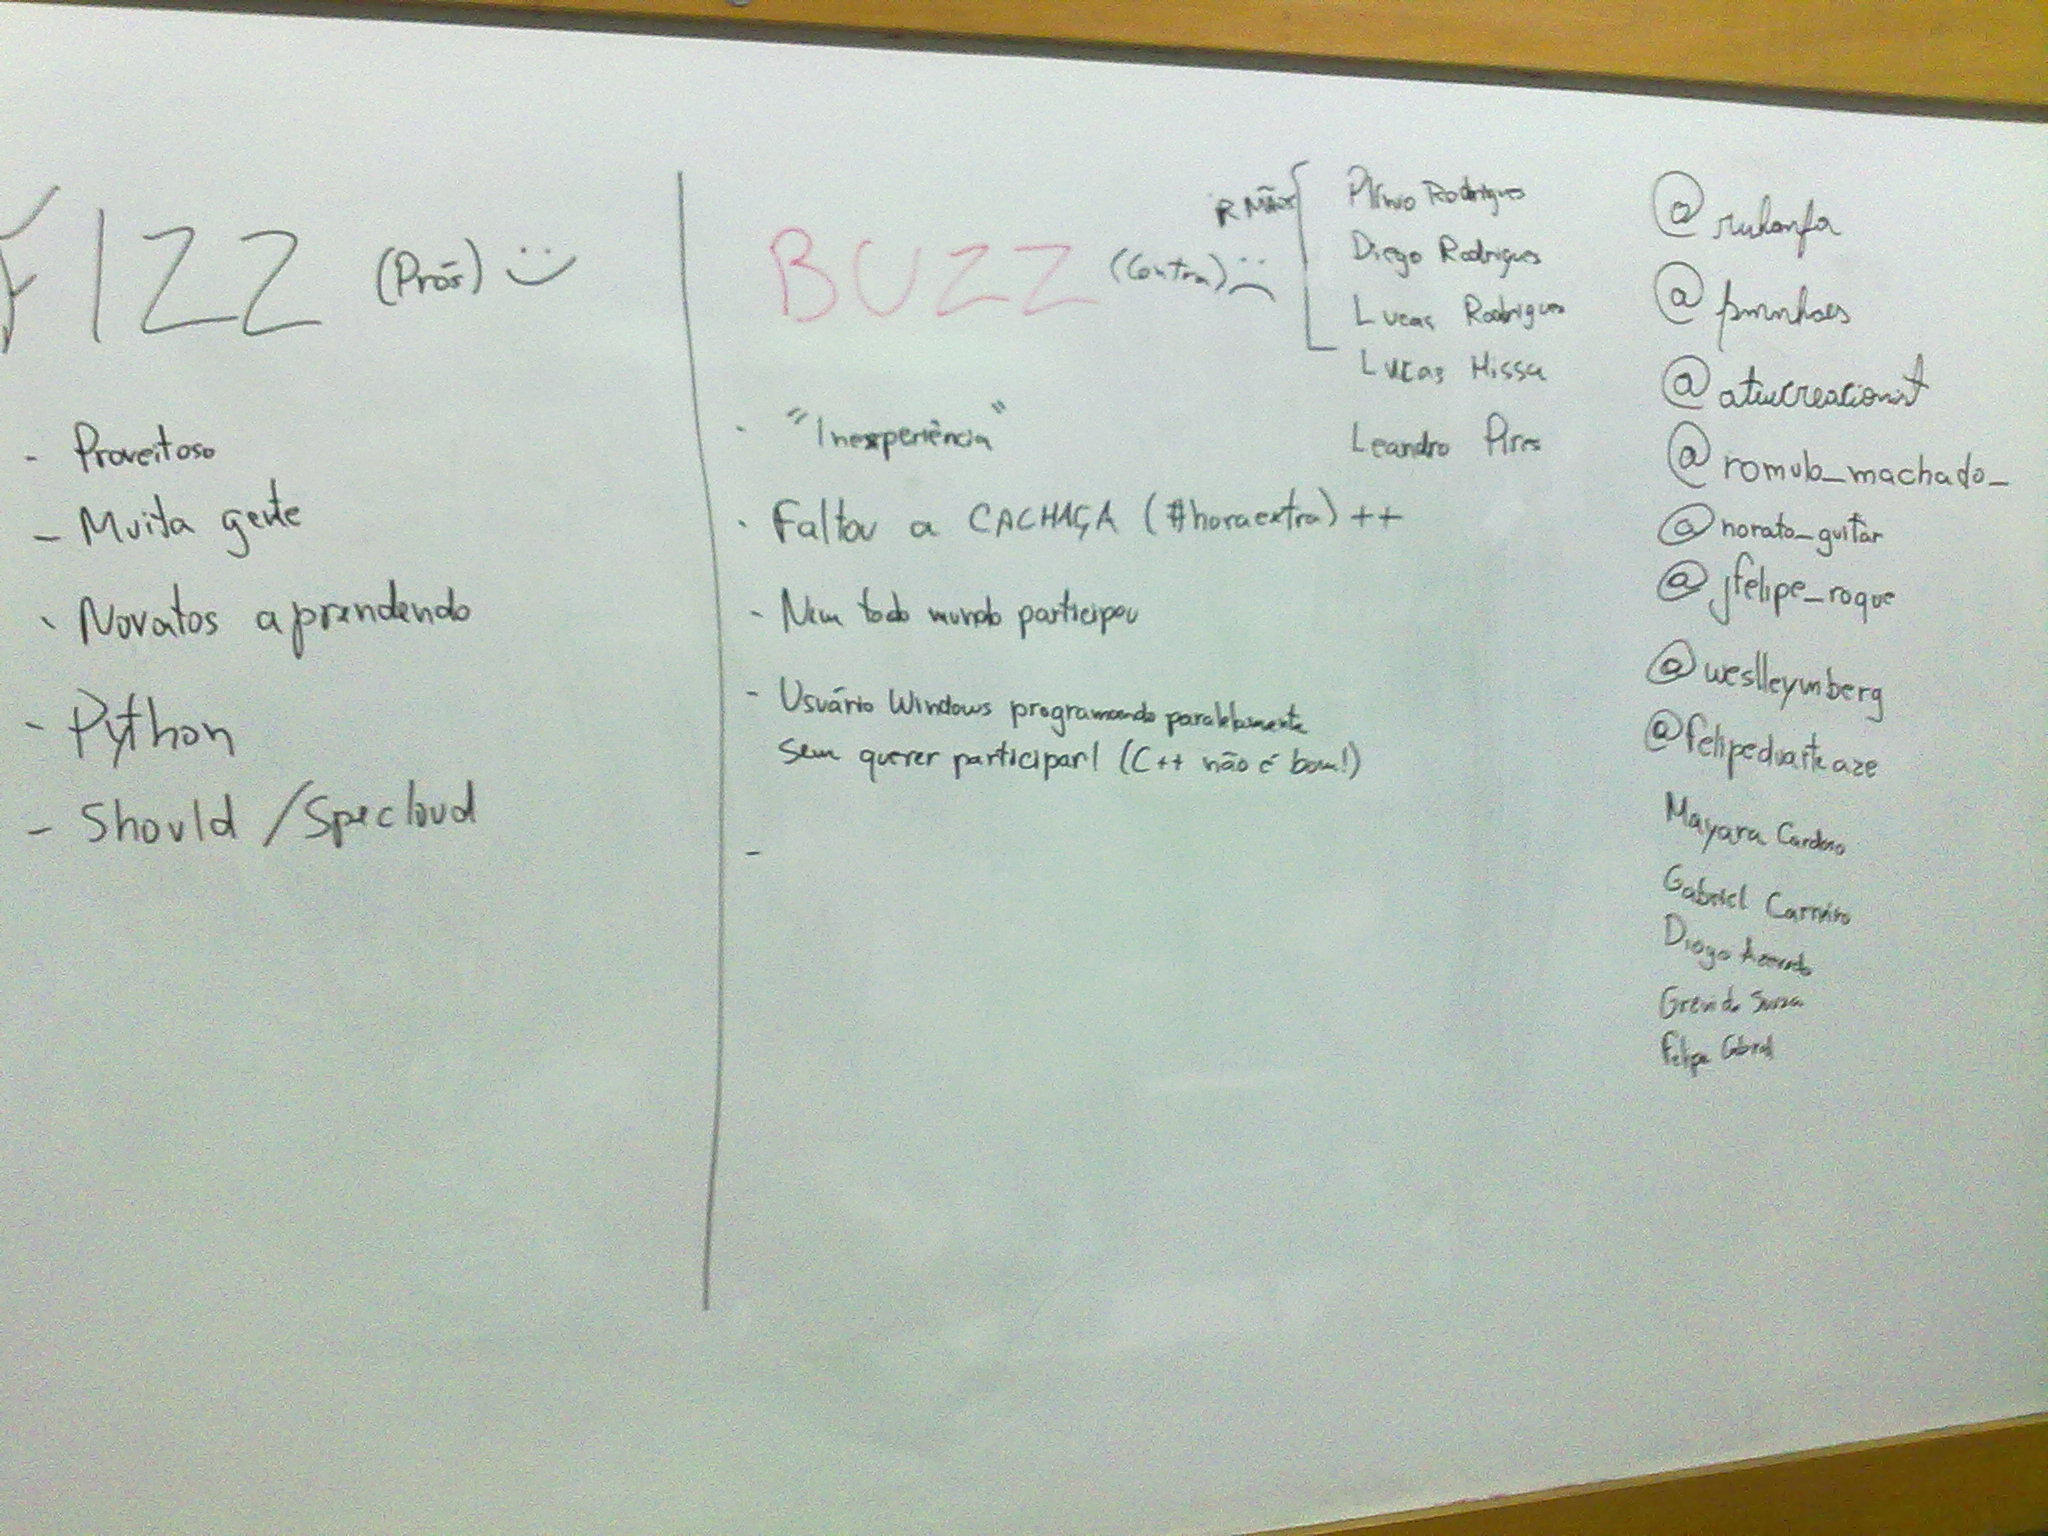 FIZZ (Prós)
- Proveitoso
- Muita gente
- Novatos aprendendo
- Python
- Should / Specloud
BUZZ (Contra)
- "Inexperiência"
- Faltou a CACHAÇA (#horaextra) ++
- Nem todo mundo participou
- Usuário Windows programando paralelamente
sem querer participar! (C++ não é bom!)
-
IRMÃOS
Plínio Rodrigues
Diego Rodrigues
Lucas Rodrigues
Lucas Hissa
Leandro Pires
@rukanfa
@pmnhaes
@romulo_machado_
@norato_guitar
@jfelipe_roque
@weslleymberg
@felipeduarteaze
Mayara Cardoso
Gabriel Carneiro
Diogo Azevedo
Souza
Felipe Cabral